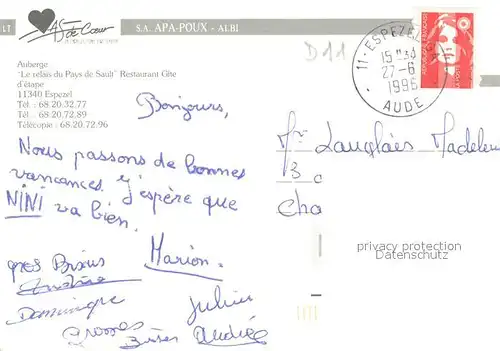 LT
As de Cœur
S.A. APA-POUX - ALBI
D11
11 - ESPEZEL
27-6
1996
AUDE
Auberge
"Le relais du Pays de Sault" Restaurant Gîte
d'étape
11340 Espezel
Tél. : 68.20.32.77
Tél. : 68.20.72.89
Télécopie : 68.20.72.96
Bonjours,
Nous passons de bonnes
vancances. j'espère que
NINI va bien.
Marion.
gros Bisous
Dominique
Julien
Grosses
Bises André
Mr Langlais Madelein
3 c
Cha
privacy protection
Datenschutz